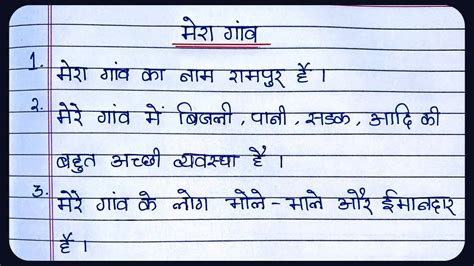 मेरा गांव
1. मेरा गांव का नाम रामपुर है ।
2. मेरे गांव में बिजली, पानी, सडक, आदि की
बहुत अच्छी व्यवस्था है ।
3. मेरे गांव के लोग भोले-भाले और ईमानदार
हैं ।